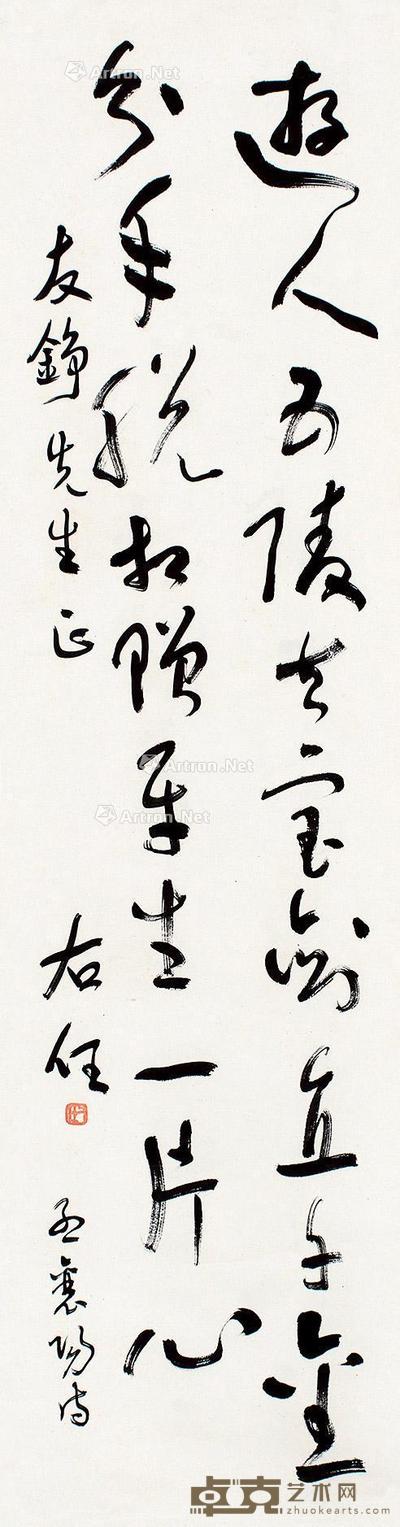 遊人五陵去寶劍直千金
分手脫相贈平生一片心
友錚先生正
右任
孟襄陽詩
Artron.Net
Artron.Net
Artron.Net
卓克艺术网
zhuokearts.com